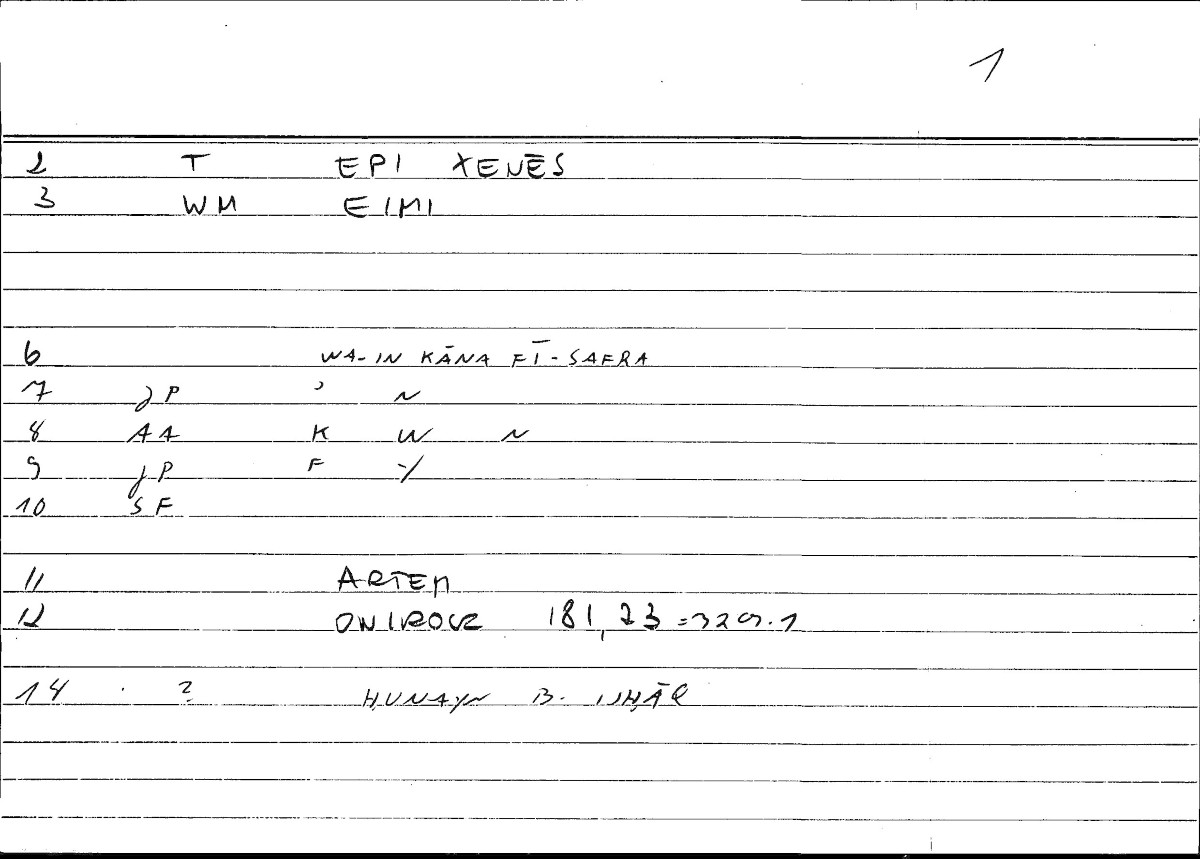 1
2 T EPI XENĒS
3 WM EIMI
6 WA-IN KĀNA FĪ-SAFRA
7 JP ʾ N
8 AA K W N
9 JP F Y
10 SF
11 ARTEM
12 ONIROCR 181,23 = 329.1
14 ? ḤUNAYN B. ISḤĀQ